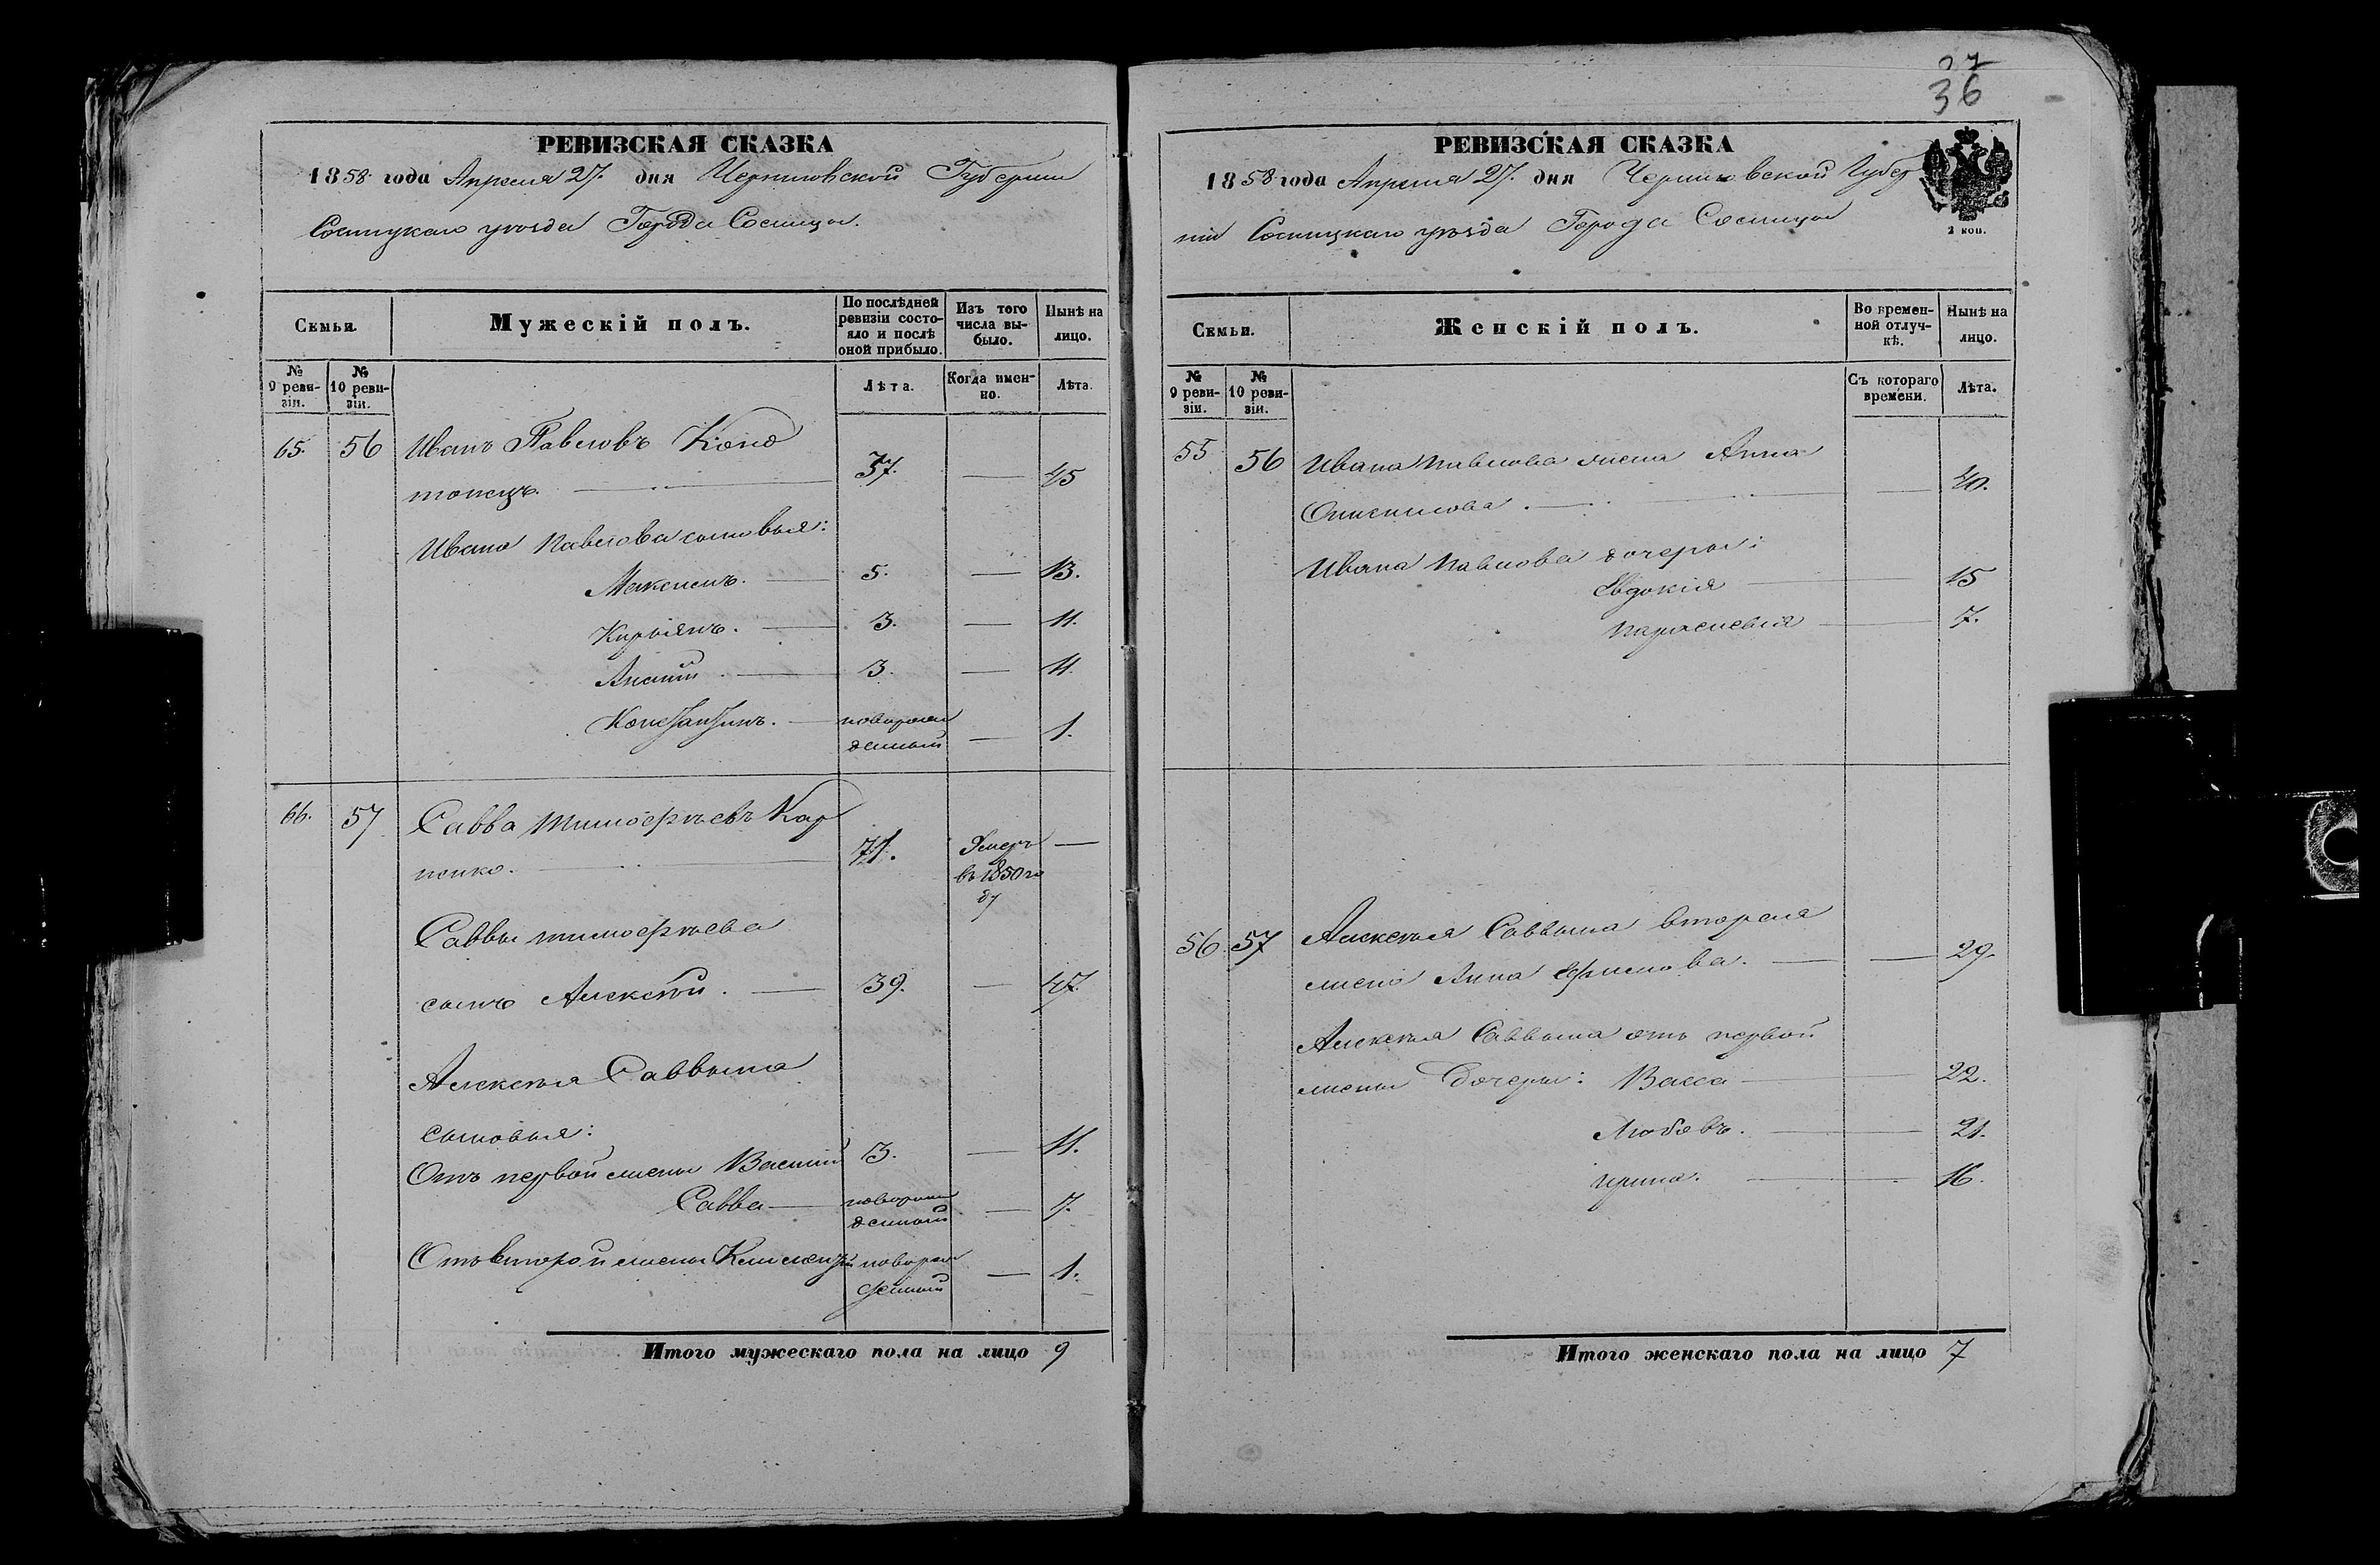 РЕВИЗСКАЯ СКАЗКА
1858 года Апреля 27. дня Черниговской Губернии
Сосницкаго уѣзда Города Сосницы.
Семьи.
Мужескій полъ.
По послѣдней ревизіи состояло и послѣ оной прибыло.
Изъ того числа выбыло.
Нынѣ на лицо.
№ 9 ревизіи.
№ 10 ревизіи.
Лѣта.
Когда именно.
Лѣта.
65. 56 Иванъ Павловъ Коно
топецъ. 37. — 45
Ивана Павлова сыновья:
Максимъ. 5. — 13.
Кирьянъ. 3. — 11.
Ананій. 3. — 11.
Константинъ. новорож
денный — 1.
66. 57 Савва Тимофѣевъ Кар
пенко. 71. Умеръ —
въ 1850 го
ду
Саввы Тимофѣева
сынъ Алексѣй. 39. — 47.
Алексѣя Саввына
сыновья:
Отъ первой жены Василій 3. — 11.
Савва — новорож
денный — 7.
Отъ второй жены Климентій новорож
денный — 1.
Итого мужескаго пола на лицо 9
27
36
РЕВИЗСКАЯ СКАЗКА
1858 года Апреля 27. дня Черниговской Губер
ніи Сосницкаго уѣзда Города Сосницы
2 коп.
Семьи.
Женскій полъ.
Во временной отлучкѣ.
Нынѣ на лицо.
№ 9 ревизіи.
№ 10 ревизіи.
Съ котораго времени.
Лѣта.
55 56 Ивана Павлова жена Анна
— 40.
Ивана Павлова дочеры:
Евдокія — 15
7.
56. 57 Алексѣя Саввына вторая
жена Анна Ефимова. — 29.
Алексѣя Саввына отъ первой
жены дочеры: Васса — 22.
Любовь. — 21.
Ирина. — 16.
Итого женскаго пола на лицо 7